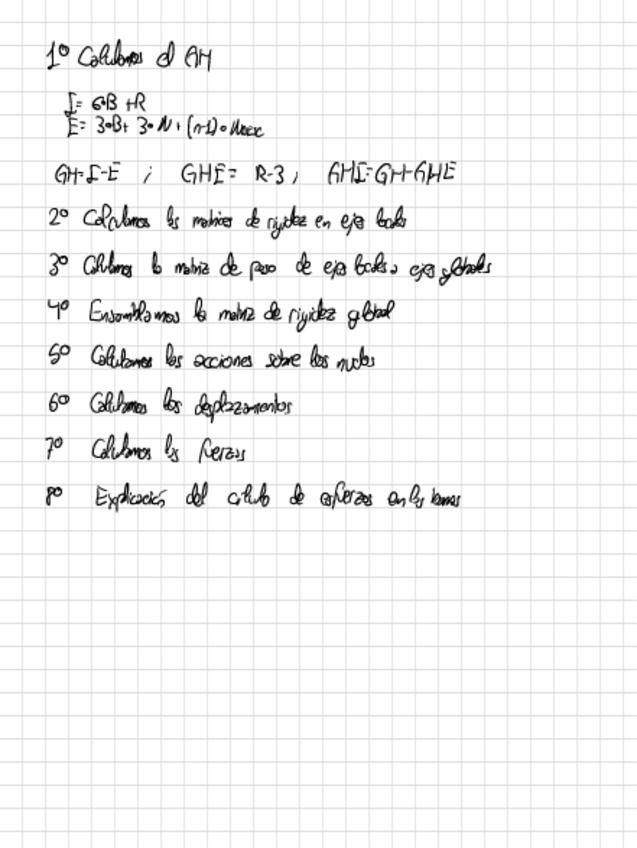 1º Calculamos el GH
I= 6·B +R
E= 3·B+ 3·N + (n-1)·Nnexc
GH=I-E ; GHE= R-3 ; GHI=GH-GHE
2º Calculamos las matrices de rigidez en ejes locales
3º Calculamos la matriz de paso de ejes locales a ejes globales
4º Ensamblamos la matriz de rigidez global
5º Calculamos las acciones sobre los nudos
6º Calculamos los desplazamientos
7º Calculamos las fuerzas
8º Explicación del cálculo de esfuerzos en las barras